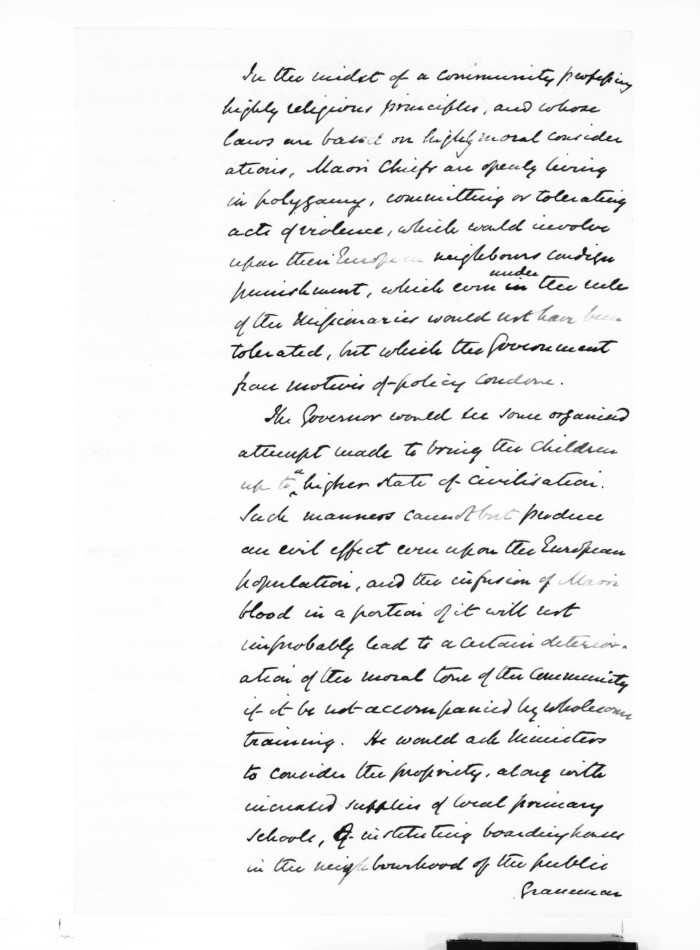 In the midst of a community professing
highly religious principles, and whose
laws are based on highly moral consider
ations, Maori Chiefs are openly living
in polygamy, committing or tolerating
acts of violence, which would involve
upon their European neighbours condign
punishment, which even in under the rule
of the Missionaries would not have been
tolerated, but which the Government
from motives of policy condone.
The Governor would see some organised
attempt made to bring the children
up to a higher state of civilisation.
Such manners cannot but produce
an evil effect even upon the European
population, and the infusion of Maori
blood in a portion of it will not
improbably lead to a certain deterior-
ation of the moral tone of the Community
if it be not accompanied by wholesome
training. He would ask Ministers
to consider the propriety, along with
increased supplies of local primary
schools, of instituting boarding houses
in the neighbourhood of the public
Grammar